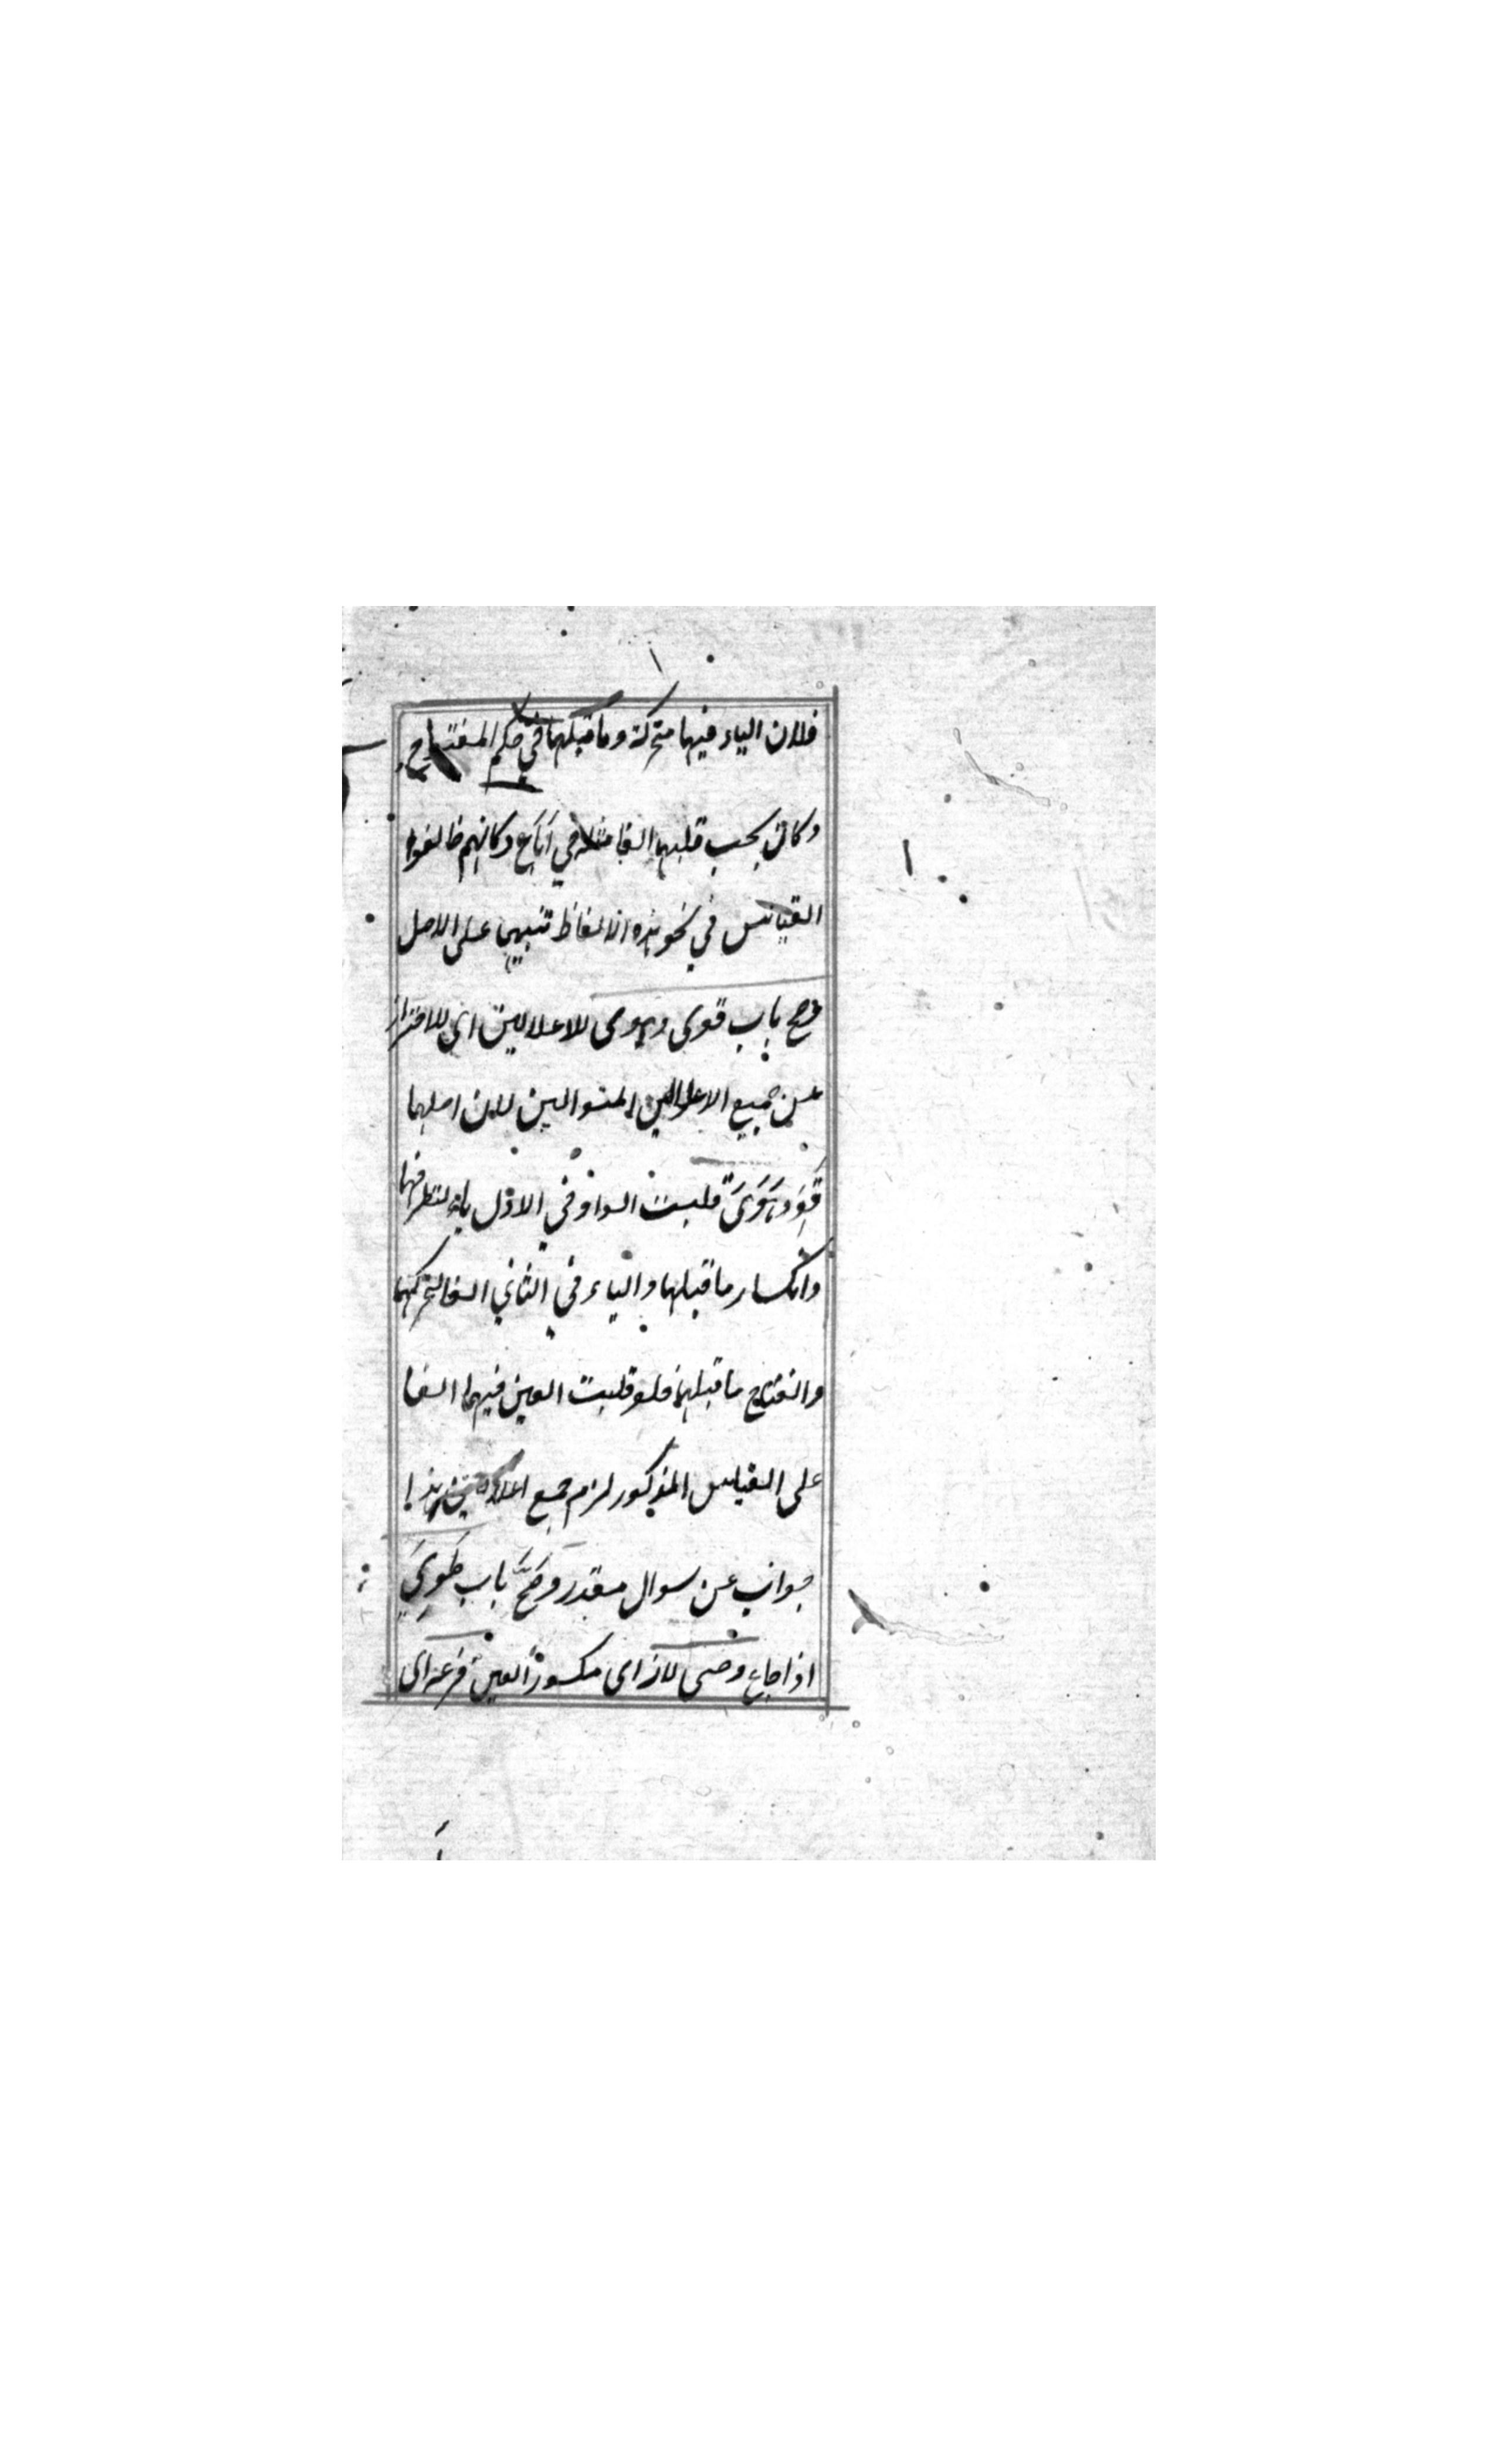 فلان الياء فيها متحركة وما قبلها في حكم المفتوح
وكان يجب قلبها الفا مثلها في اباع وكانهم خالفوا
القياس في نحو هذه الالفاظ تنبيها على الاصل
وصح باب قوى وهوى للاعلالين اى للاحتراز
عن جميع الاعلالين المتوالين لان اصلهما
قَوِوَ وهَوَىَ قلبت الواو في الاول ياء لتطرفها
وانكسار ما قبلها والياء في الثاني الفا لتحركها
وانفتاح ما قبلها فلو قلبت العين فيهما الفا
على القياس المذكور لزم جمع اعلالين هذا
جواب عن سوال مقدر وصَحَّ باب طَوِيَ
اذا جاء وحيى لان اى مكسور العين فرعه اى